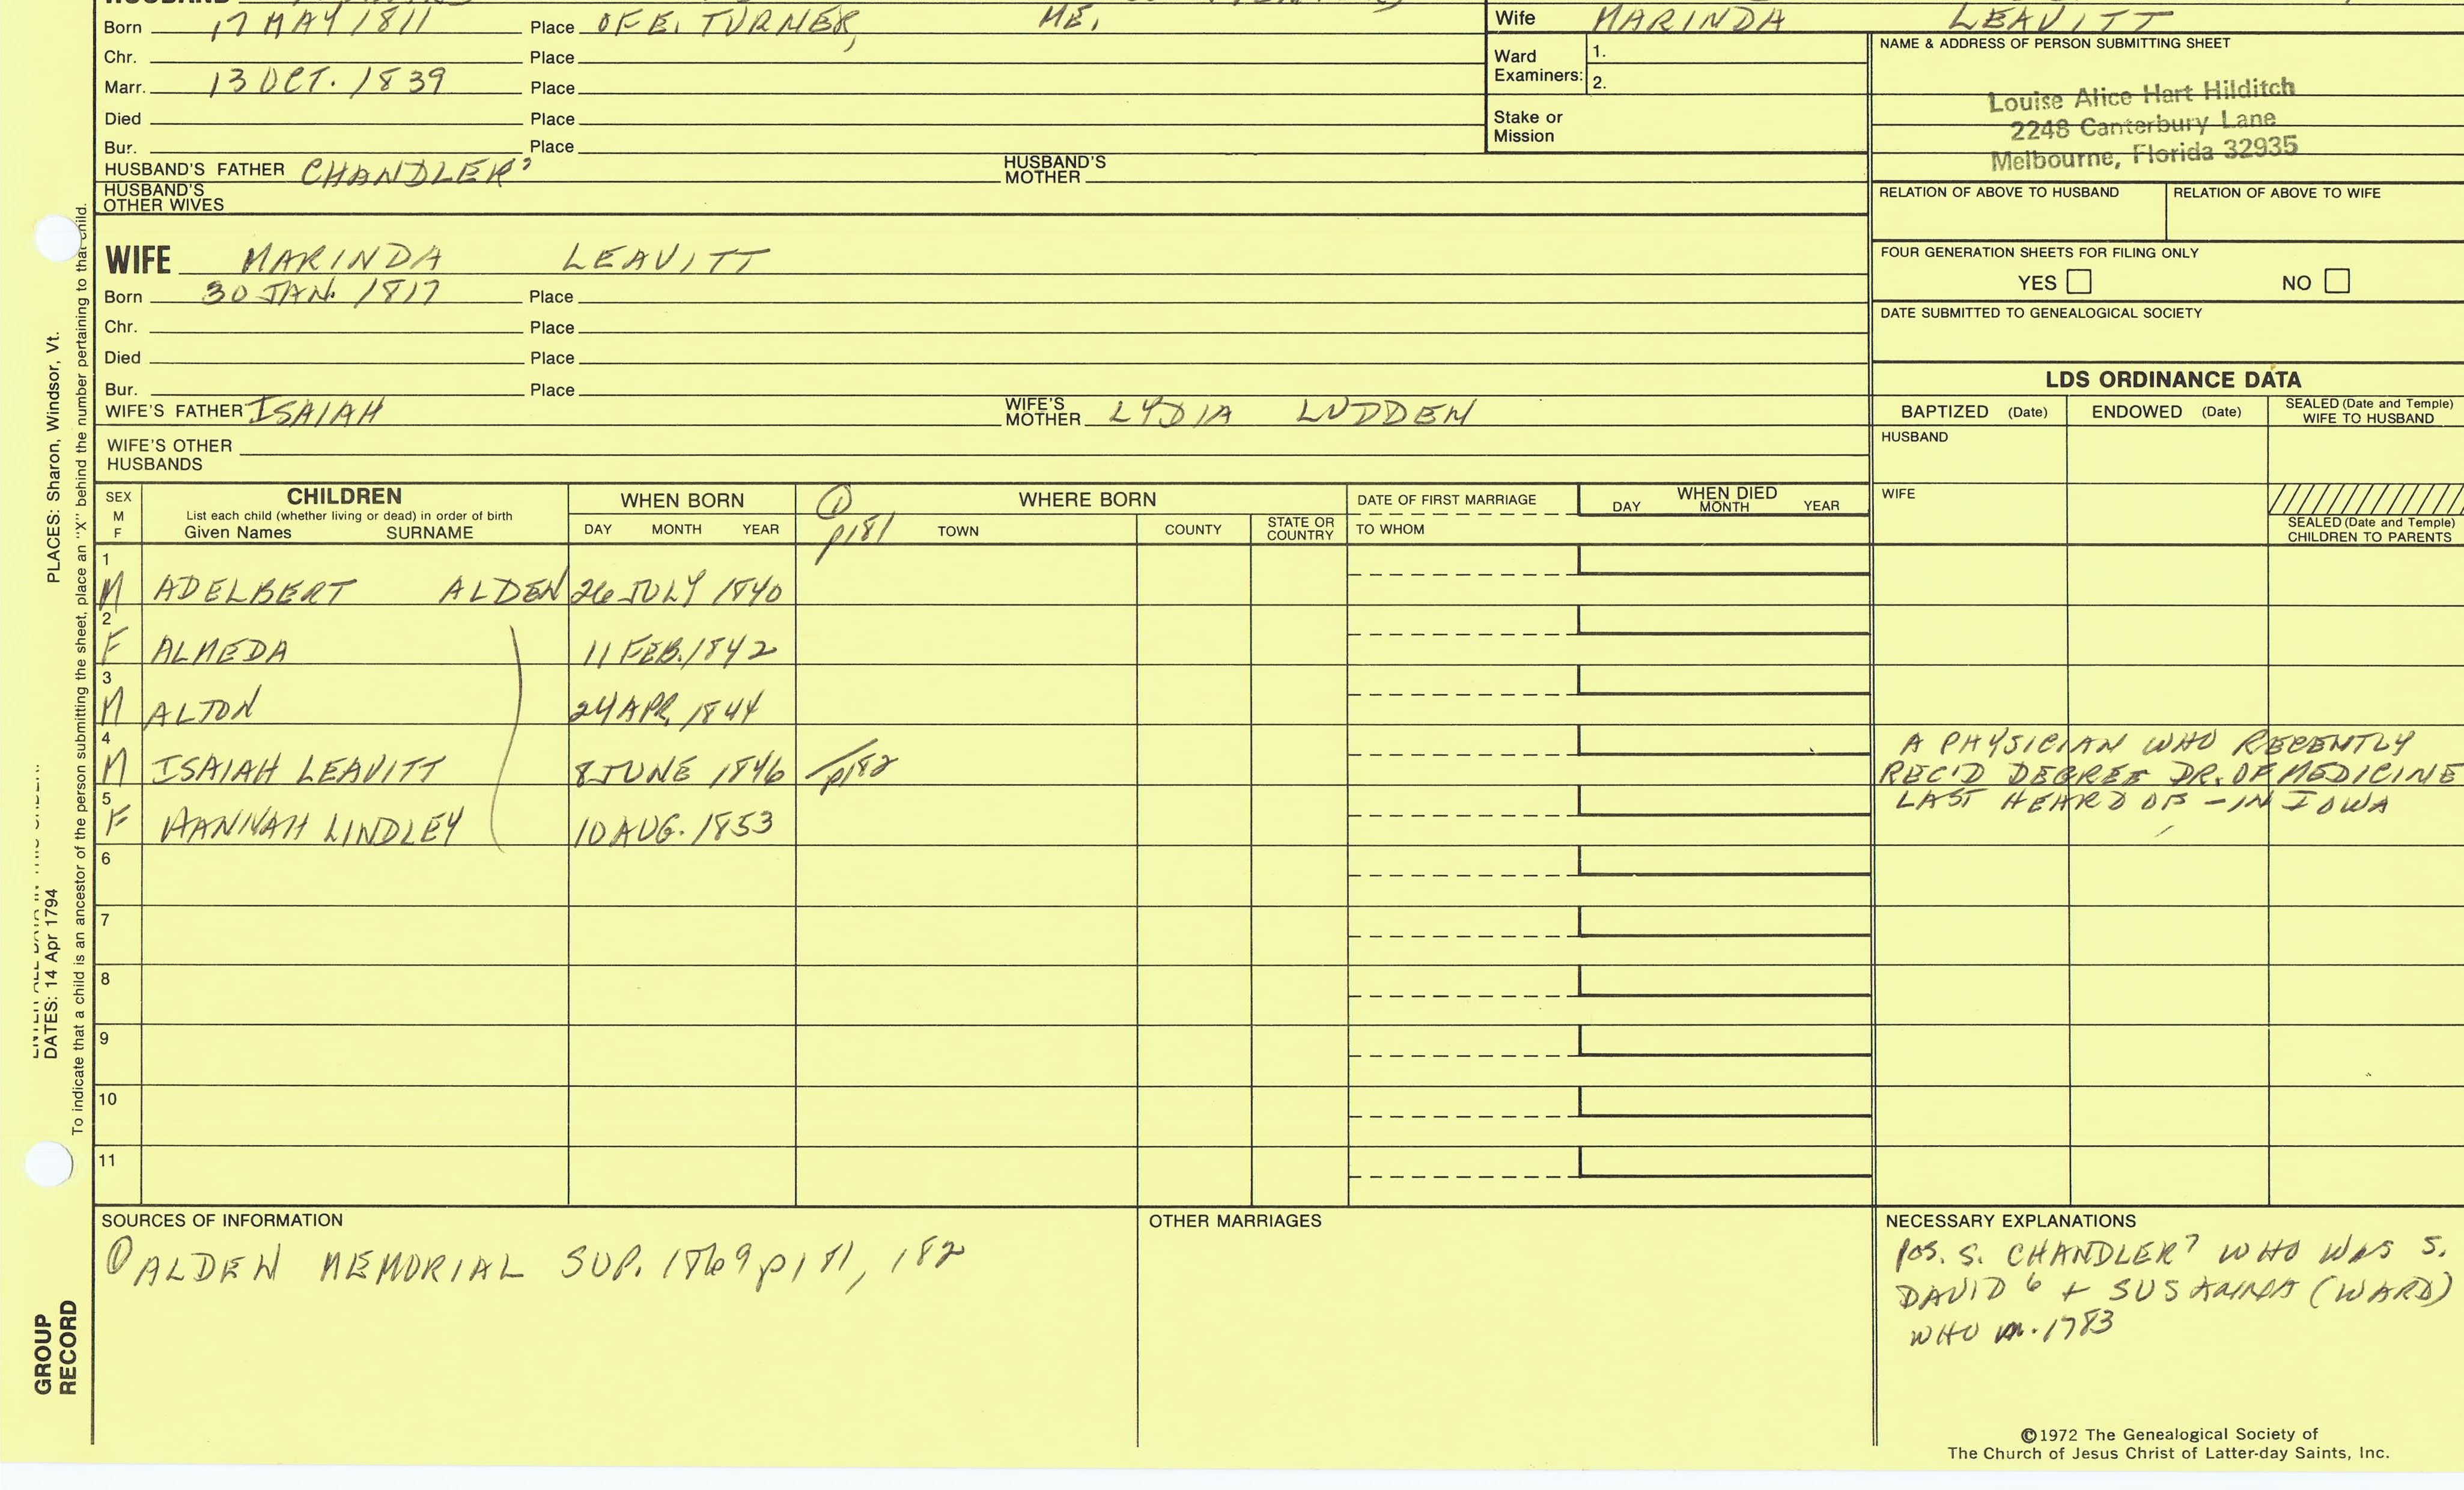 Born 17 MAY 1811 Place OF E. TURNER, ME.
Wife MARINDA LEAVITT
Chr. Place
Marr. 13 OCT. 1839 Place
Died Place
Bur. Place
Ward Examiners: 1.
2.
Stake or Mission
NAME & ADDRESS OF PERSON SUBMITTING SHEET
Louise Alice Hart Hilditch
2248 Canterbury Lane
Melbourne, Florida 32935
HUSBAND'S FATHER CHANDLER⁷ HUSBAND'S MOTHER
HUSBAND'S OTHER WIVES
RELATION OF ABOVE TO HUSBAND RELATION OF ABOVE TO WIFE
WIFE MARINDA LEAVITT
Born 30 JAN. 1817 Place
Chr. Place
Died Place
Bur. Place
WIFE'S FATHER ISAIAH WIFE'S MOTHER LYDIA LUDDEN
WIFE'S OTHER HUSBANDS
FOUR GENERATION SHEETS FOR FILING ONLY
YES NO
DATE SUBMITTED TO GENEALOGICAL SOCIETY
LDS ORDINANCE DATA
BAPTIZED (Date) ENDOWED (Date) SEALED (Date and Temple) WIFE TO HUSBAND
HUSBAND
WIFE
SEALED (Date and Temple) CHILDREN TO PARENTS
SEX M F
CHILDREN
List each child (whether living or dead) in order of birth
Given Names SURNAME
WHEN BORN
DAY MONTH YEAR
① p181
WHERE BORN
TOWN COUNTY STATE OR COUNTRY
DATE OF FIRST MARRIAGE
TO WHOM
WHEN DIED
DAY MONTH YEAR
1 M ADELBERT ALDEN 26 JULY 1840
2 F ALMEDA 11 FEB. 1842
3 M ALTON 24 APR. 1844
4 M ISAIAH LEAVITT 8 JUNE 1846 p182
A PHYSICIAN WHO RECENTLY
REC'D DEGREE DR. OF MEDICINE
LAST HEARD OF - IN IOWA
5 F HANNAH LINDLEY 10 AUG. 1853
6
7
8
9
10
11
SOURCES OF INFORMATION
① ALDEN MEMORIAL SUP. 1869 p181, 182
OTHER MARRIAGES
NECESSARY EXPLANATIONS
POS. S. CHANDLER⁷ WHO WAS S.
DAVID⁶ + SUSANNA (WARD)
WHO m. 1783
©1972 The Genealogical Society of
The Church of Jesus Christ of Latter-day Saints, Inc.
PLACES: Sharon, Windsor, Vt.
DATES: 14 Apr 1794
To indicate that a child is an ancestor of the person submitting the sheet, place an "X" behind the number pertaining to that child.
GROUP RECORD